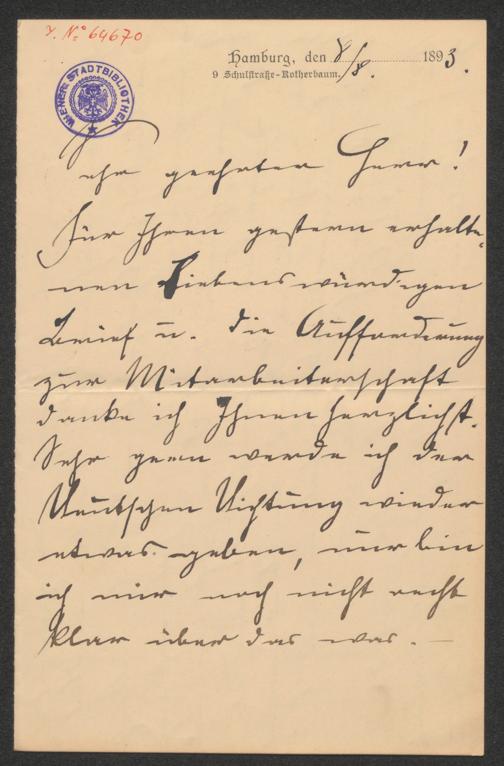 J. Nº 64670
WIENER STADTBIBLIOTHEK
Hamburg, den 8/8. 1893.
9 Schulstraße-Rotherbaum.
Sehr geehrter Herr!
Für Ihren gestern erhalte-
nen liebenswürdigen
Brief u. die Aufforderung
zur Mitarbeiterschaft
danke ich Ihnen herzlichst.
Sehr gern werde ich der
Deutschen Dichtung wieder
etwas geben, nur bin
ich mir noch nicht recht
klar über das was. —